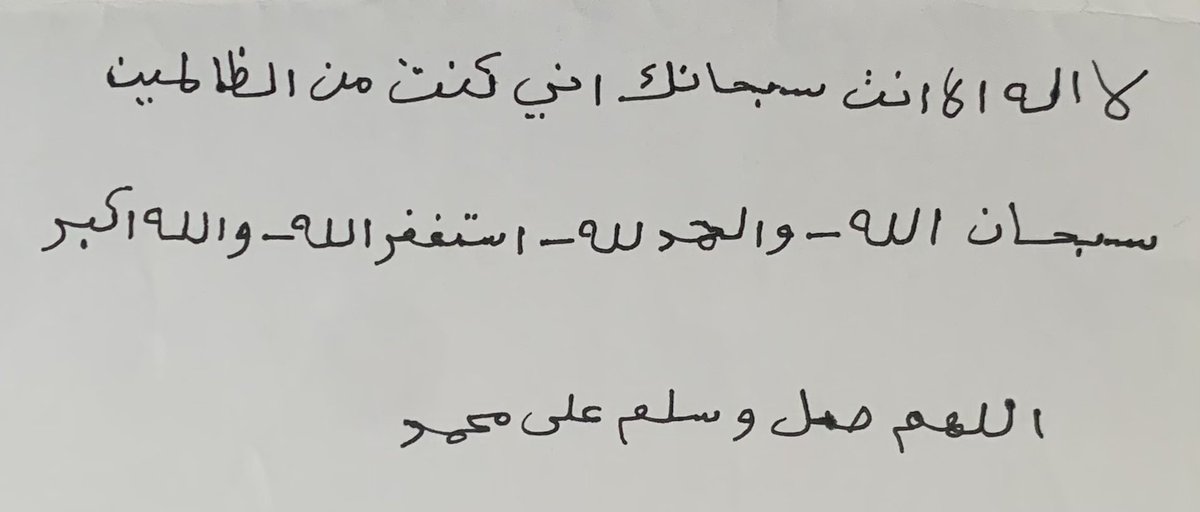 لا اله الا انت سبحانك اني كنت من الظالمين
سبحان الله - والحمد لله - استغفر الله - والله اكبر
اللهم صل وسلم على محمد